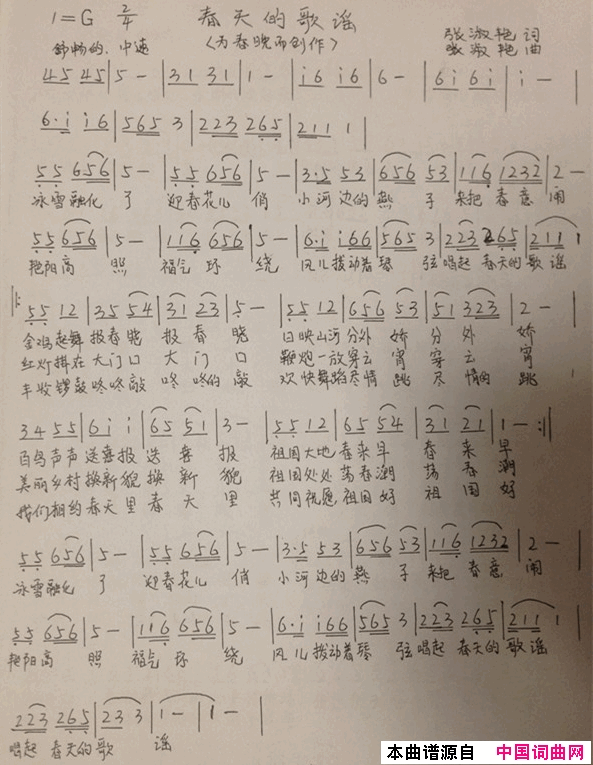 1=G 2/4 春天的歌谣
舒畅的.中速 (为春晚而创作) 张淑艳 词
张淑艳 曲
45 45 | 5 - | 31 31 | 1 - | i6 i6 | 6 - | 6i 6i | i - |
6·i i6 | 565 3 | 223 265 | 211 1 |
55 656 | 5 - | 55 656 | 5 - | 3·5 53 | 656 53 | 116 1232 | 2 -
冰雪融化 了 迎春花儿 俏 小河边的 燕 子 来把 春意 闹
55 656 | 5 - | 116 656 | 5 - | 6·i i66 | 565 3 | 223 265 | 211 1
艳阳高 照 福气 环 绕 风儿拨动着琴 弦唱起 春天的歌 谣
‖: 55 12 | 35 54 | 31 23 | 5 - | 55 12 | 656 53 | 51 323 | 2 - |
金鸡起舞报春晓 报 春 晓 日映山河分外 娇 分 外 娇
红灯挂在大门口 大 门 口 鞭炮一放穿云 霄 穿 云 霄
丰收锣鼓咚咚敲 咚 咚的 敲 欢快舞蹈尽情 跳 尽 情的 跳
34 55 | 6i i | 65 51 | 3 - | 55 12 | 65 54 | 31 21 | 1 - :‖
百鸟声声送喜报送 喜 报 祖国大地春来早 春 来 早
美丽乡村换新貌换 新 貌 祖国处处荡春潮 荡 春 潮
我们相约春天里春 天 里 共同祝愿祖国好 祖 国 好
55 656 | 5 - | 55 656 | 5 - | 3·5 53 | 656 53 | 116 1232 | 2 - |
冰雪融化 了 迎春花儿 俏 小河边的燕 子 来把 春意 闹
55 656 | 5 - | 116 656 | 5 - | 6·i i66 | 565 3 | 223 265 | 211 1 |
艳阳高 照 福气 环 绕 风儿拨动着琴 弦唱起 春天的歌 谣
223 265 | 223 3 | 1 - | 1 - |
唱起 春天的歌 谣
本曲谱源自 中国词曲网